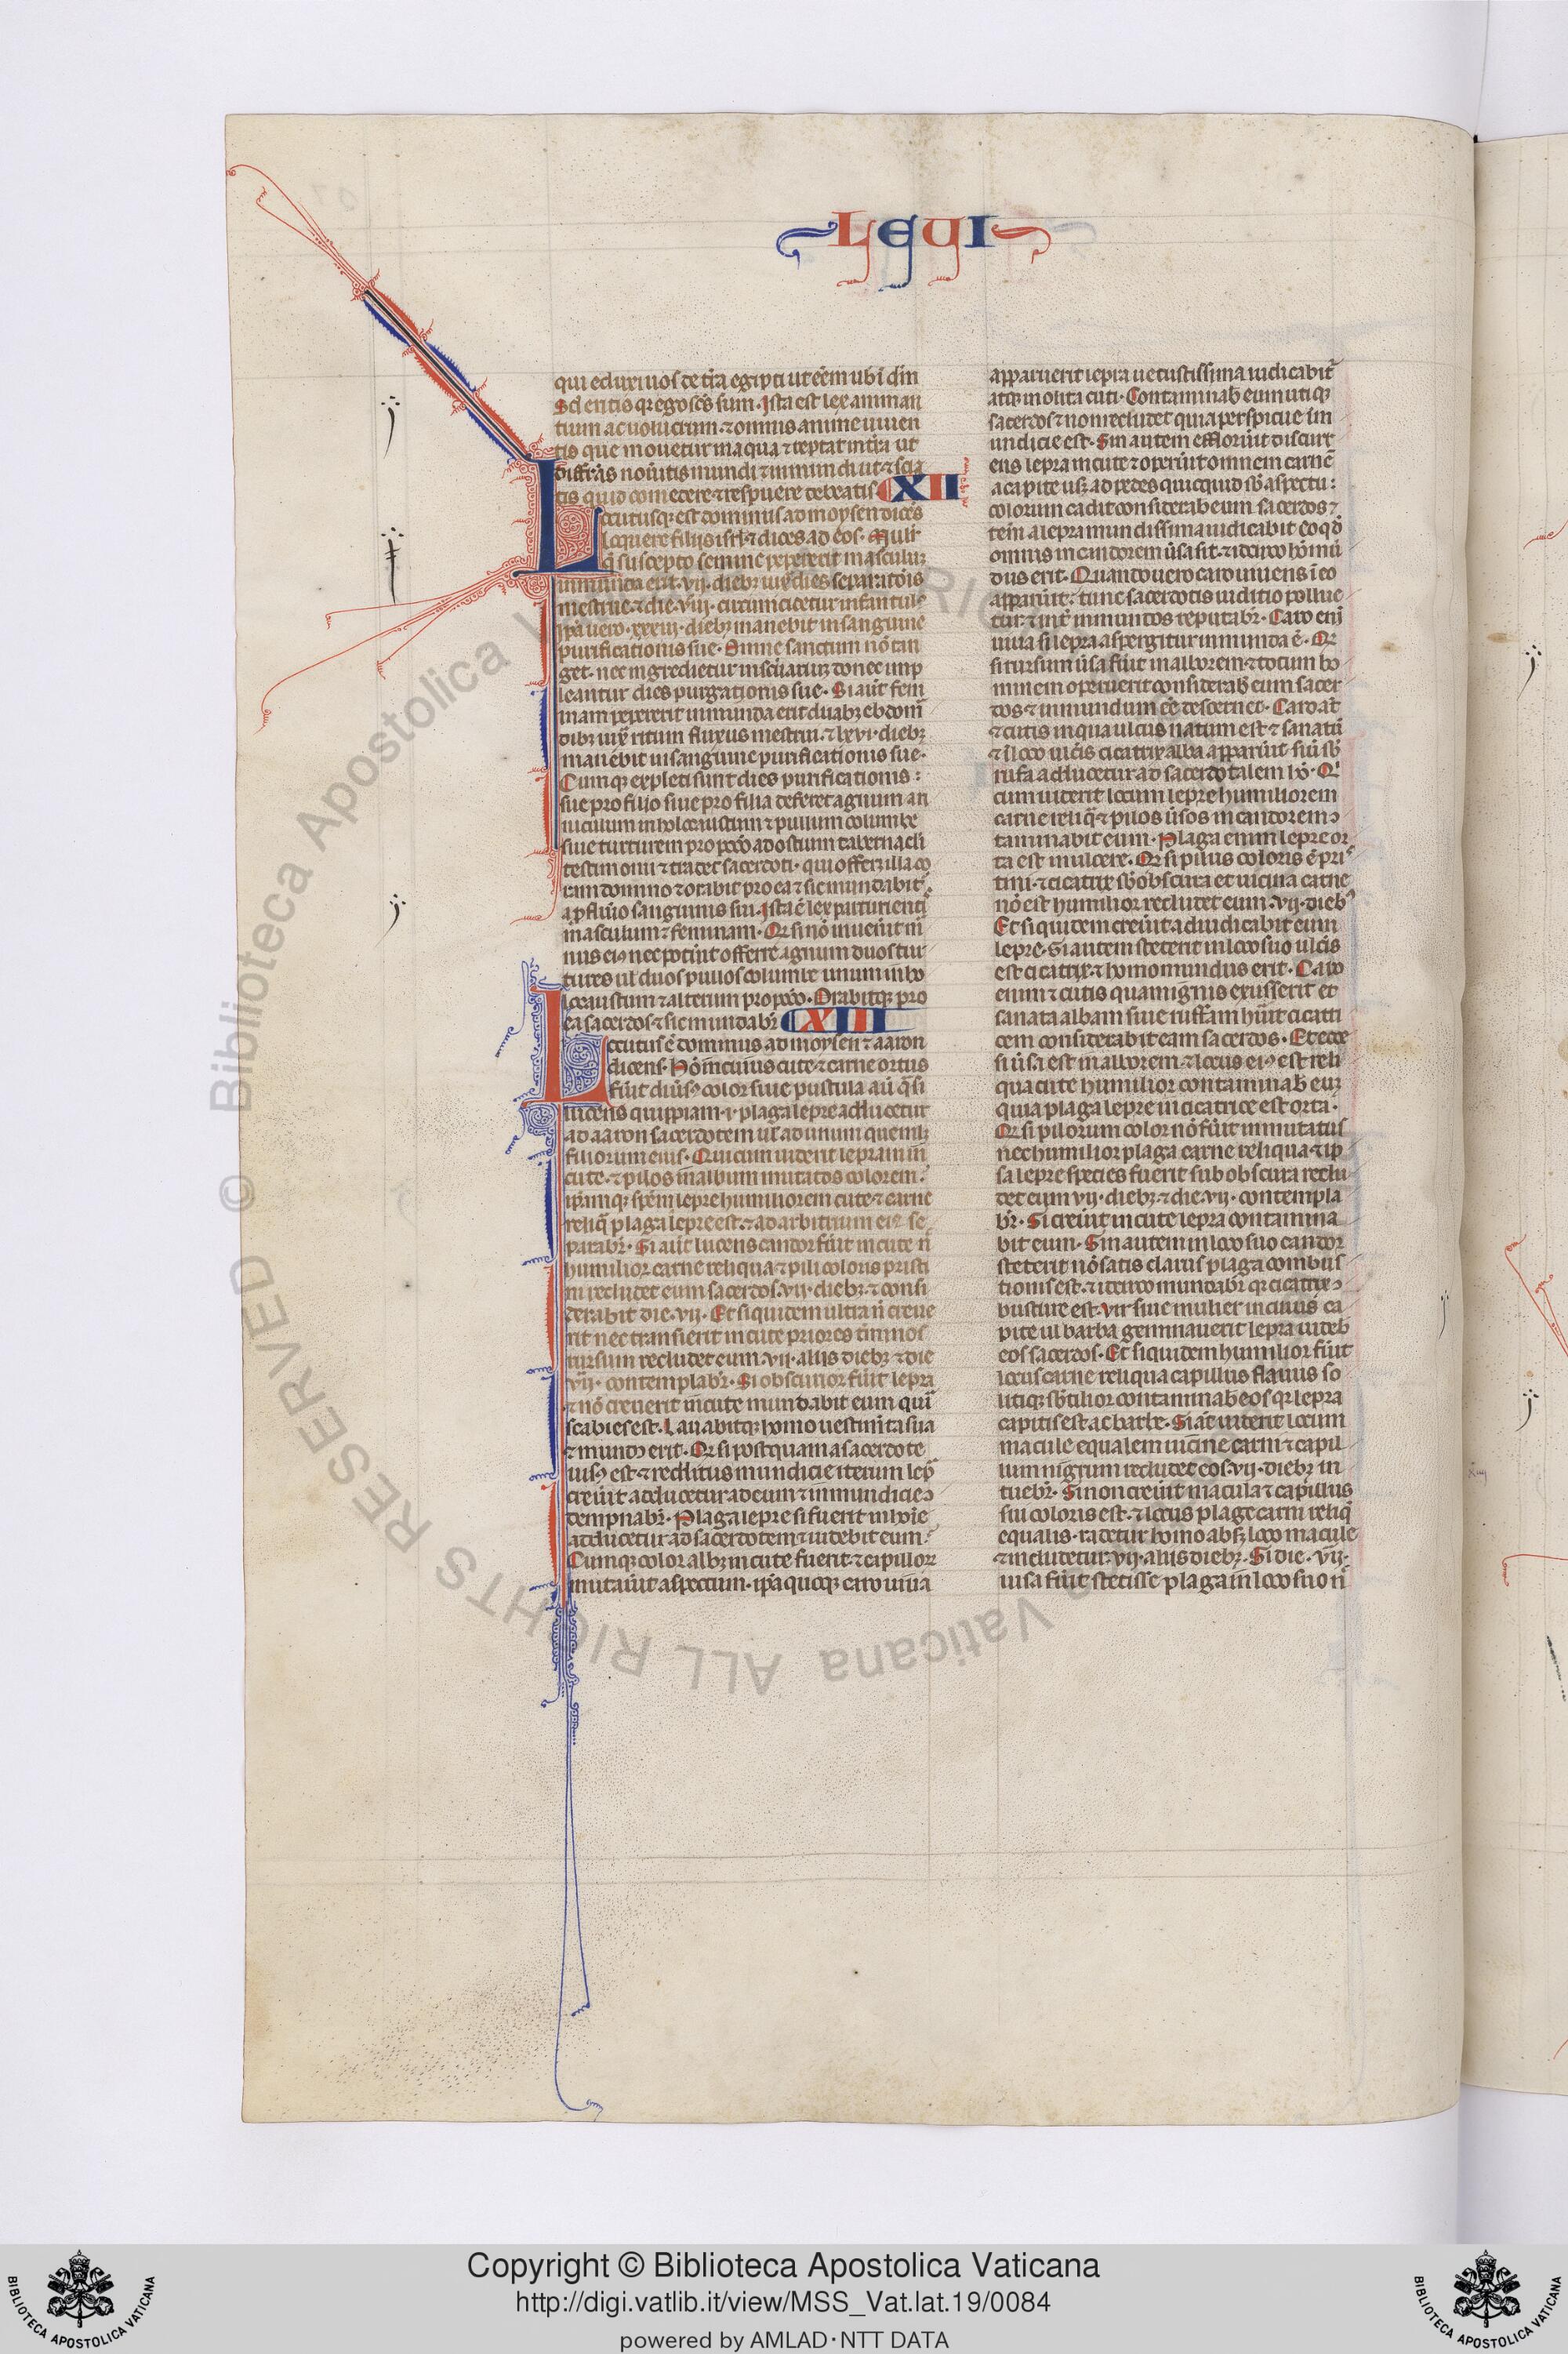 LEVI
qui eduxi uos de tr̄a egipti ut eēm uob̄ ī dm̄
Sc̄i eritis qr̄ ego sc̄s sum. Ista est lex animan
tium ac uolucrum ⁊ omnis anime uiuen
tis que mouetur in aqua ⁊ reptat in tr̄a ut
diffr̄as nou̓itis mundi ⁊ inmundi ut ⁊ scia
tis quid comedere ⁊ respuere debeatis XII
Locutusq; est dominus ad moysen dices
Loquere filijs isrl̄ ⁊ dices ad eos. Muli̓
q̄ suscepto semine pepererit masculuz
inmunda erit .vij. dieb; iux̄ dies separatōis
mestrue. ⁊ die .viij. circumcidetur infantul᾽
ip̄a uero .xxxiij. dieb; manebit in sanguine
purificationis sue. Omne sanctum nō tan
get. nec ingredietur in scūariuz donec imp
leantur dies purgationis sue. Si aūt fem̄
inam pepererit inmunda erit duab; ebdom̄
dib; iux̄ ritum fluxus mestrui. ⁊ lxvi. dieb;
manebit in sanguine purificationis sue.
Cumq; expleti sunt dies purificationis:
sue pro filio siue pro filia deferet agnum an
niculum in holocaustum ⁊ pullum columbe
siue turturem pro pccō ad ostium tabernacli
testimonii ⁊ tradet sacerdoti. qui offeret illa co
ram domino ⁊ orabit pro ea ⁊ sic mundabit᾽
a p̄fluuio sanguinis sui. Ista ē lex parturientis
masculum ⁊ feminam. Qr̄ si nō inuen̓it m̄
nus ei᾽ nec potu̓it offerre agnum duos tur
tures ul̄ duos pullos columbe unum in ho
locaustum ⁊ alterum pro pccō. Orabitq; pro
ea sacerdos ⁊ sic mundabr̄ XIII
Locutus ē dominus ad moysen ⁊ aaron
dicens. Hō in cuius cute ⁊ carne ortus
fu̓it diu̓s᾽ color siue pustula aū q̄si
lucens quippiam .i. plaga lepre adducetur
ad aaron sacerdotem ul̄ ad unum quemlz
filiorum eius. Qui cum uiderit lepram in
cute. ⁊ pilos in album mutatos colorem.
ip̄amq; spēm lepre humiliorem cute ⁊ carne
reliq̄ plaga lepre est. ⁊ ad arbitrium ei᾽ se
parabr̄. Si aūt lucens candor fu̓it in cute n̄
humilior carne reliqua ⁊ pili coloris pristi
ni recludet eum sacerdos .vij. dieb; ⁊ consi
derabit die .vij. Et siquidem ultra n̄ creue
rit nec transierit in cute priores t̓minos
rursum recludet eum .vij. aliis dieb; ⁊ die
.vij. contemplabr̄. Si obscurior fu̓it lepra
⁊ nō creuerit in cute mundabit eum quia
scabies est. Lauabitq; homo uestim̄ta sua
⁊ mund᾽ erit. Qr̄ si postquam a sacerdote
uis᾽ est ⁊ redditus mundicie iterum lep̄
creu̓it adducetur ad eum ⁊ inmundicie
dempnabr̄. Plaga lepre si fuerit in hoīe
adducetur ad sacerdotem ⁊ uidebit eum.
Cumq; color alb; in cute fuerit ⁊ capillorz
mutau̓it aspectum. ip̄a quoq; caro uiua
apparuerit lepra uetustissima iudicabit᾽
atq; inolita cuti. Contaminab̄ eum utiq;
sacerdos ⁊ non recludet quia perspicue in
mundicie est. Sin autem efflorūit discurr
ens lepra in cute ⁊ operu̓it omnem carnē
a capite usq; ad pedes quicquid sb̄ aspectu:
colorum cadit considerab̄ eum sacerdos ⁊
teīn a lepra mundissima iudicabit eo qd̄
omnis in candorem u̓sa sit. ⁊ idcirco hō mū
dus erit. Quando uero caro uiuens ī eo
apparu̓it: tunc sacerdotis iuditio pollue
tur. ⁊ int᾽ inmundos reputabr̄. Caro eni
uiua si lepra aspergitur inmunda ē. Qr̄
si rursum u̓sa fu̓it in alborem ⁊ totum ho
minem operuerit considerab̄ eum sacer
dos ⁊ inmundum eē decernet. Caro aūt
⁊ cutis in qua ulcus natum est ⁊ sanatū
⁊ ī loco ulc̓is cicatrix alba apparu̓it siū sb̄
rufa adducetur ad sacerdotalem hō. Q̄
cum uiderit locum lepre humiliorem
carne reliq̄ ⁊ pilos u̓sos in candorem
taminabit eum. Plaga enim lepre or
ta est in ulcere. Qr̄ si pilus coloris ē pri᾽
tini. ⁊ cicatrix sb̄obscura et uicina carne
nō est humilior recludet eum .vij. dieb᾽
Et siquidem creu̓it adiudicabit eum
lepre. si autem steterit in loco suo ulc̓is
est cicatrix. ⁊ homo mundus erit. Caro
enim ⁊ cutis quam ignis exusserit et
sanata albam siue ruffam hu̓it cicatri
cem considerabit eam sacerdos. Et ecce
si u̓sa est in alborem. ⁊ locus ei᾽ est reli
qua cute humilior contaminab̄ euz
quia plaga lepre in cicatrice est orta.
Qr̄ si pilorum color nō fu̓it inmutatus
nec humilior plaga carne reliqua ⁊ ip
sa lepre species fuerit sub obscura reclu
det eum vij. dieb; ⁊ die .vij. contempla
br̄. Si creu̓it in cute lepra contamina
bit eum. Sin autem in loco suo candor
steterit nō satis clarus plaga combus
tionis est. ⁊ idcirco mundabr̄ qr̄ cicatrix
busture est. Vir siue mulier in cuius ca
pite ul̄ barba germinauerit lepra uideb̄
eos sacerdos. Et siquidem humilior fu̓it
locus carne reliqua capillus flauus so
litiq; sb̄tilior contaminab̄ eos qr̄ lepra
capitis est ac barbe. Si aūt uiderit locum
macule equalem uicine carni ⁊ capil
lum nigrum recludet eos .vij. dieb; in
tuebr̄. Si non creu̓it macula ⁊ capillus
sui coloris est. ⁊ locus plage carni reliq̄
equalis. radetur homo absq; loco macule
⁊ includetur .vij. aliis dieb;. Si die .vij.
uisa fu̓it stetisse plaga in loco suo n̄
© Biblioteca Apostolica Vaticana ALL RIGHTS RESERVED
Copyright © Biblioteca Apostolica Vaticana
http://digi.vatlib.it/view/MSS_Vat.lat.19/0084
powered by AMLAD·NTT DATA
BIBLIOTECA APOSTOLICA VATICANA
BIBLIOTECA APOSTOLICA VATICANA